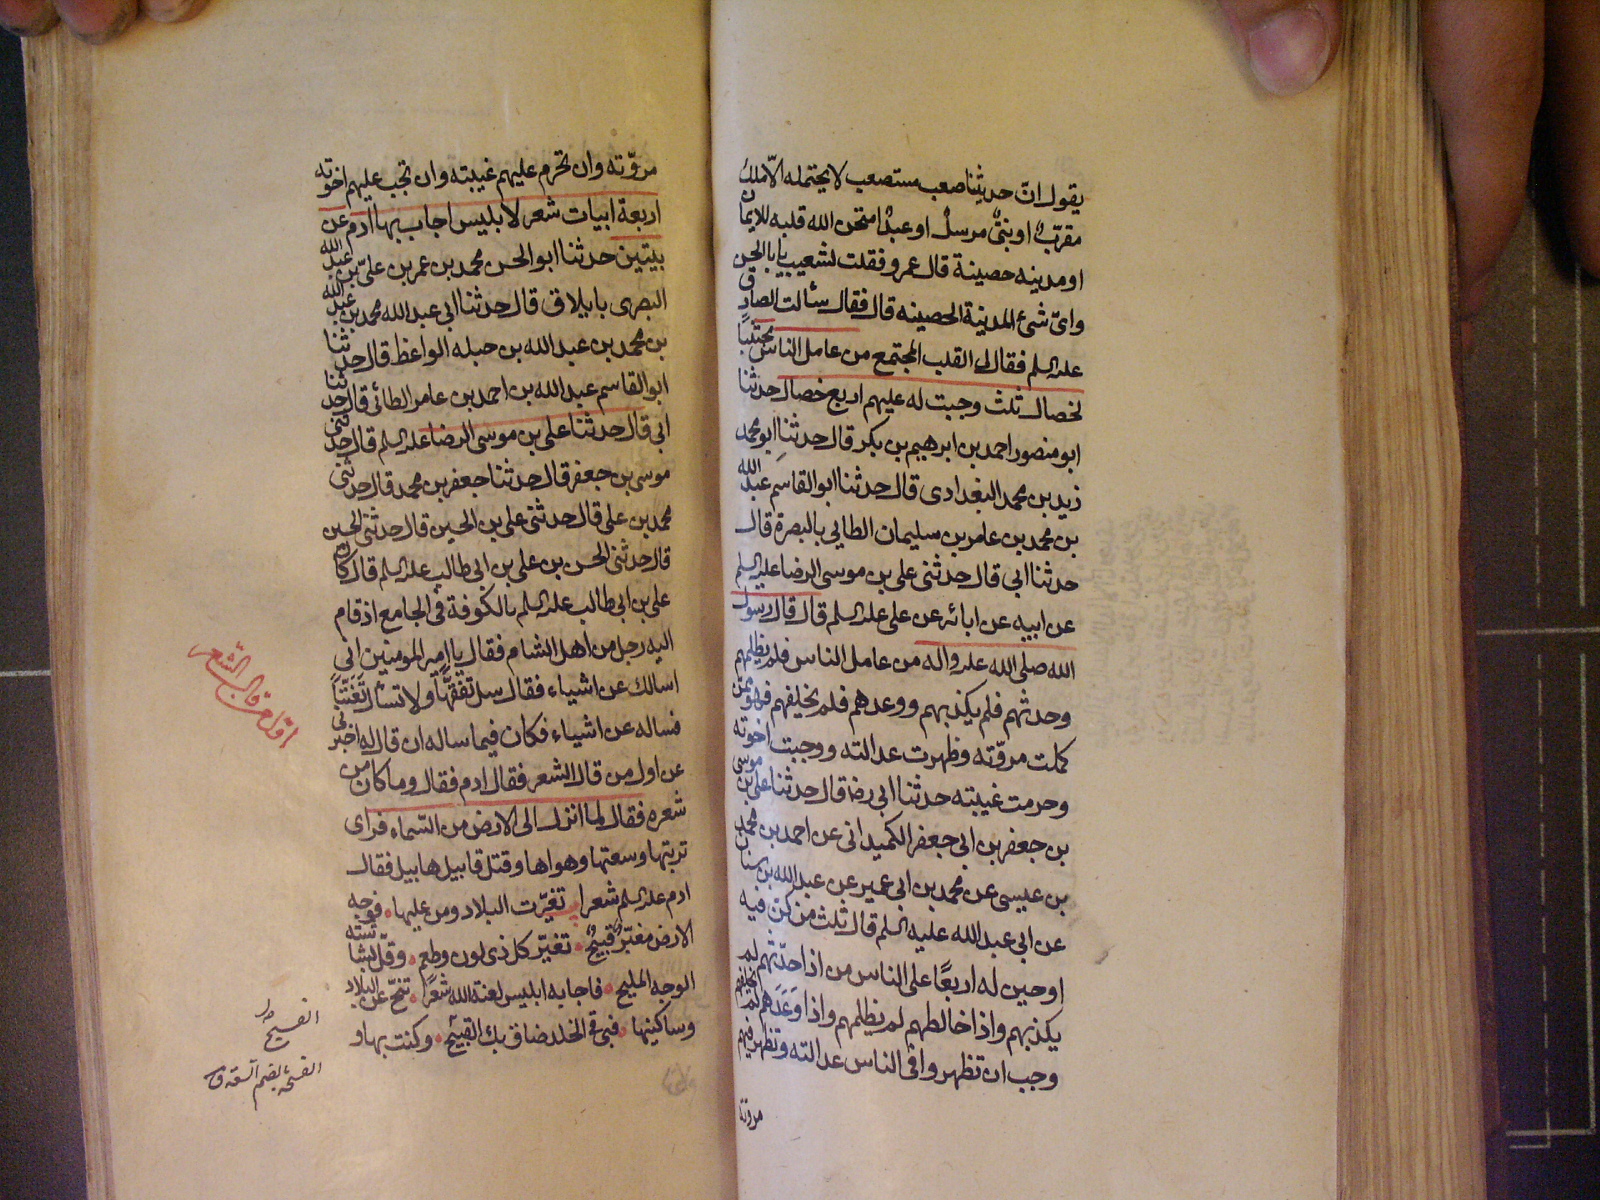 يقول ان حديثنا صعب مستصعب لا يحتمله الا ملك
مقرب او نبي مرسل او عبد امتحن الله قلبه للايمان
او مدينه حصينة قال عمرو فقلت لشعيب يا ابا الحسن
واى شئ المدينة الحصينه قال فقال سئالت الصادق
عليه السلم فقال لى القلب المجتمع من عامل الناس مجتنبا
لخصال ثلث وجبت له عليهم اربع خصال حدثنا
ابو منصور احمد بن ابرهيم بن بكر قال حدثنا ابو محمد
زيد بن محمد البغدادى قال حدثنا ابو القاسم عبد الله
بن محمد بن عامر بن سليمان الطايى بالبصرة قال
حدثنا ابى قال حدثنى على بن موسى الرضا عليه السلم
عن ابيه عن ابائه عن على عليه السلم قال قال رسول
الله صلى الله عليه واله من عامل الناس فلم يظلمهم
وحدثهم فلم يكذبهم ووعدهم فلم يخلفهم فهو ممن
كملت مروّته وظهرت عدالته ووجبت اخوته
وحرمت غيبته حدثنا ابى رضه قال حدثنا على بن موسى
بن جعفر بن ابى جعفر الكميدانى عن احمد بن محمد
بن عيسى عن محمد بن ابى عمير عن عبد الله بن سنان
عن ابى عبد الله عليه السلم قال ثلث من كن فيه
اوجبن له اربعًا على الناس من اذا حدّثهم لم
يكذبهم واذا خالطهم لم يظلمهم واذا وعَدَهم لم يخلفهم
وجب ان تظهروا فى الناس عدالته وتظهر فيهم
مروته
مروّته وان تحرم عليهم غيبته وان تجب عليهم اخوته
اربعة ابيات شعر لابليس اجاب بها ادم عن
بيتين حدثنا ابو الحسن محمد بن عمر بن علىّ بن عبد الله
البصرى بايلاق قال حدثنا ابى عبد الله محمد بن عبد الله
بن محمد بن عبد الله بن حبله الواعظ قال حدثنا
ابو القاسم عبد الله بن احمد بن عامر الطائى قال حدثنا
ابى قال حدثنا على بن موسى الرضا عليه السلم قال حدثنى
موسى بن جعفر قال حدثنا جعفر بن محمد قال حدثنى
محمد بن على قال حدثنى على بن الحسين قال حدثنى الحسين
قال حدثنى الحسن بن على بن ابى طالب عليه السلم قال كان
على بن ابى طالب عليه السلم بالكوفة فى الجامع اذ قام
اليه رجل من اهل الشام فقال يا امير المومنين انى
اسالك عن اشياء فقال سل تفقهًا ولا تسئال تعنّتاً
فساله عن اشياء فكان فيما ساله ان قال له اخبرنى
عن اول من قال الشعر فقال ادم فقال وما كان من
شعره فقال لما انزل الى الارض من السّماء فراى
تربتها وسعتها وهواها وقتل قابيل هابيل فقال
ادم عليه السلم شعرا تغيّرت البلاد ومن عليها فوجه
الارض مغبرّ قبيح تغيّر كل ذى لون وطعم وقلّ بشاشته
الوجه المليح فاجابه ابليس لعنة الله شعرًا تنحّ عن البلاد
وساكنيها فبى فى الخلد ضاق بك الفسيح وكنت بها و
اوّل من قال الشّعر
الفسيح